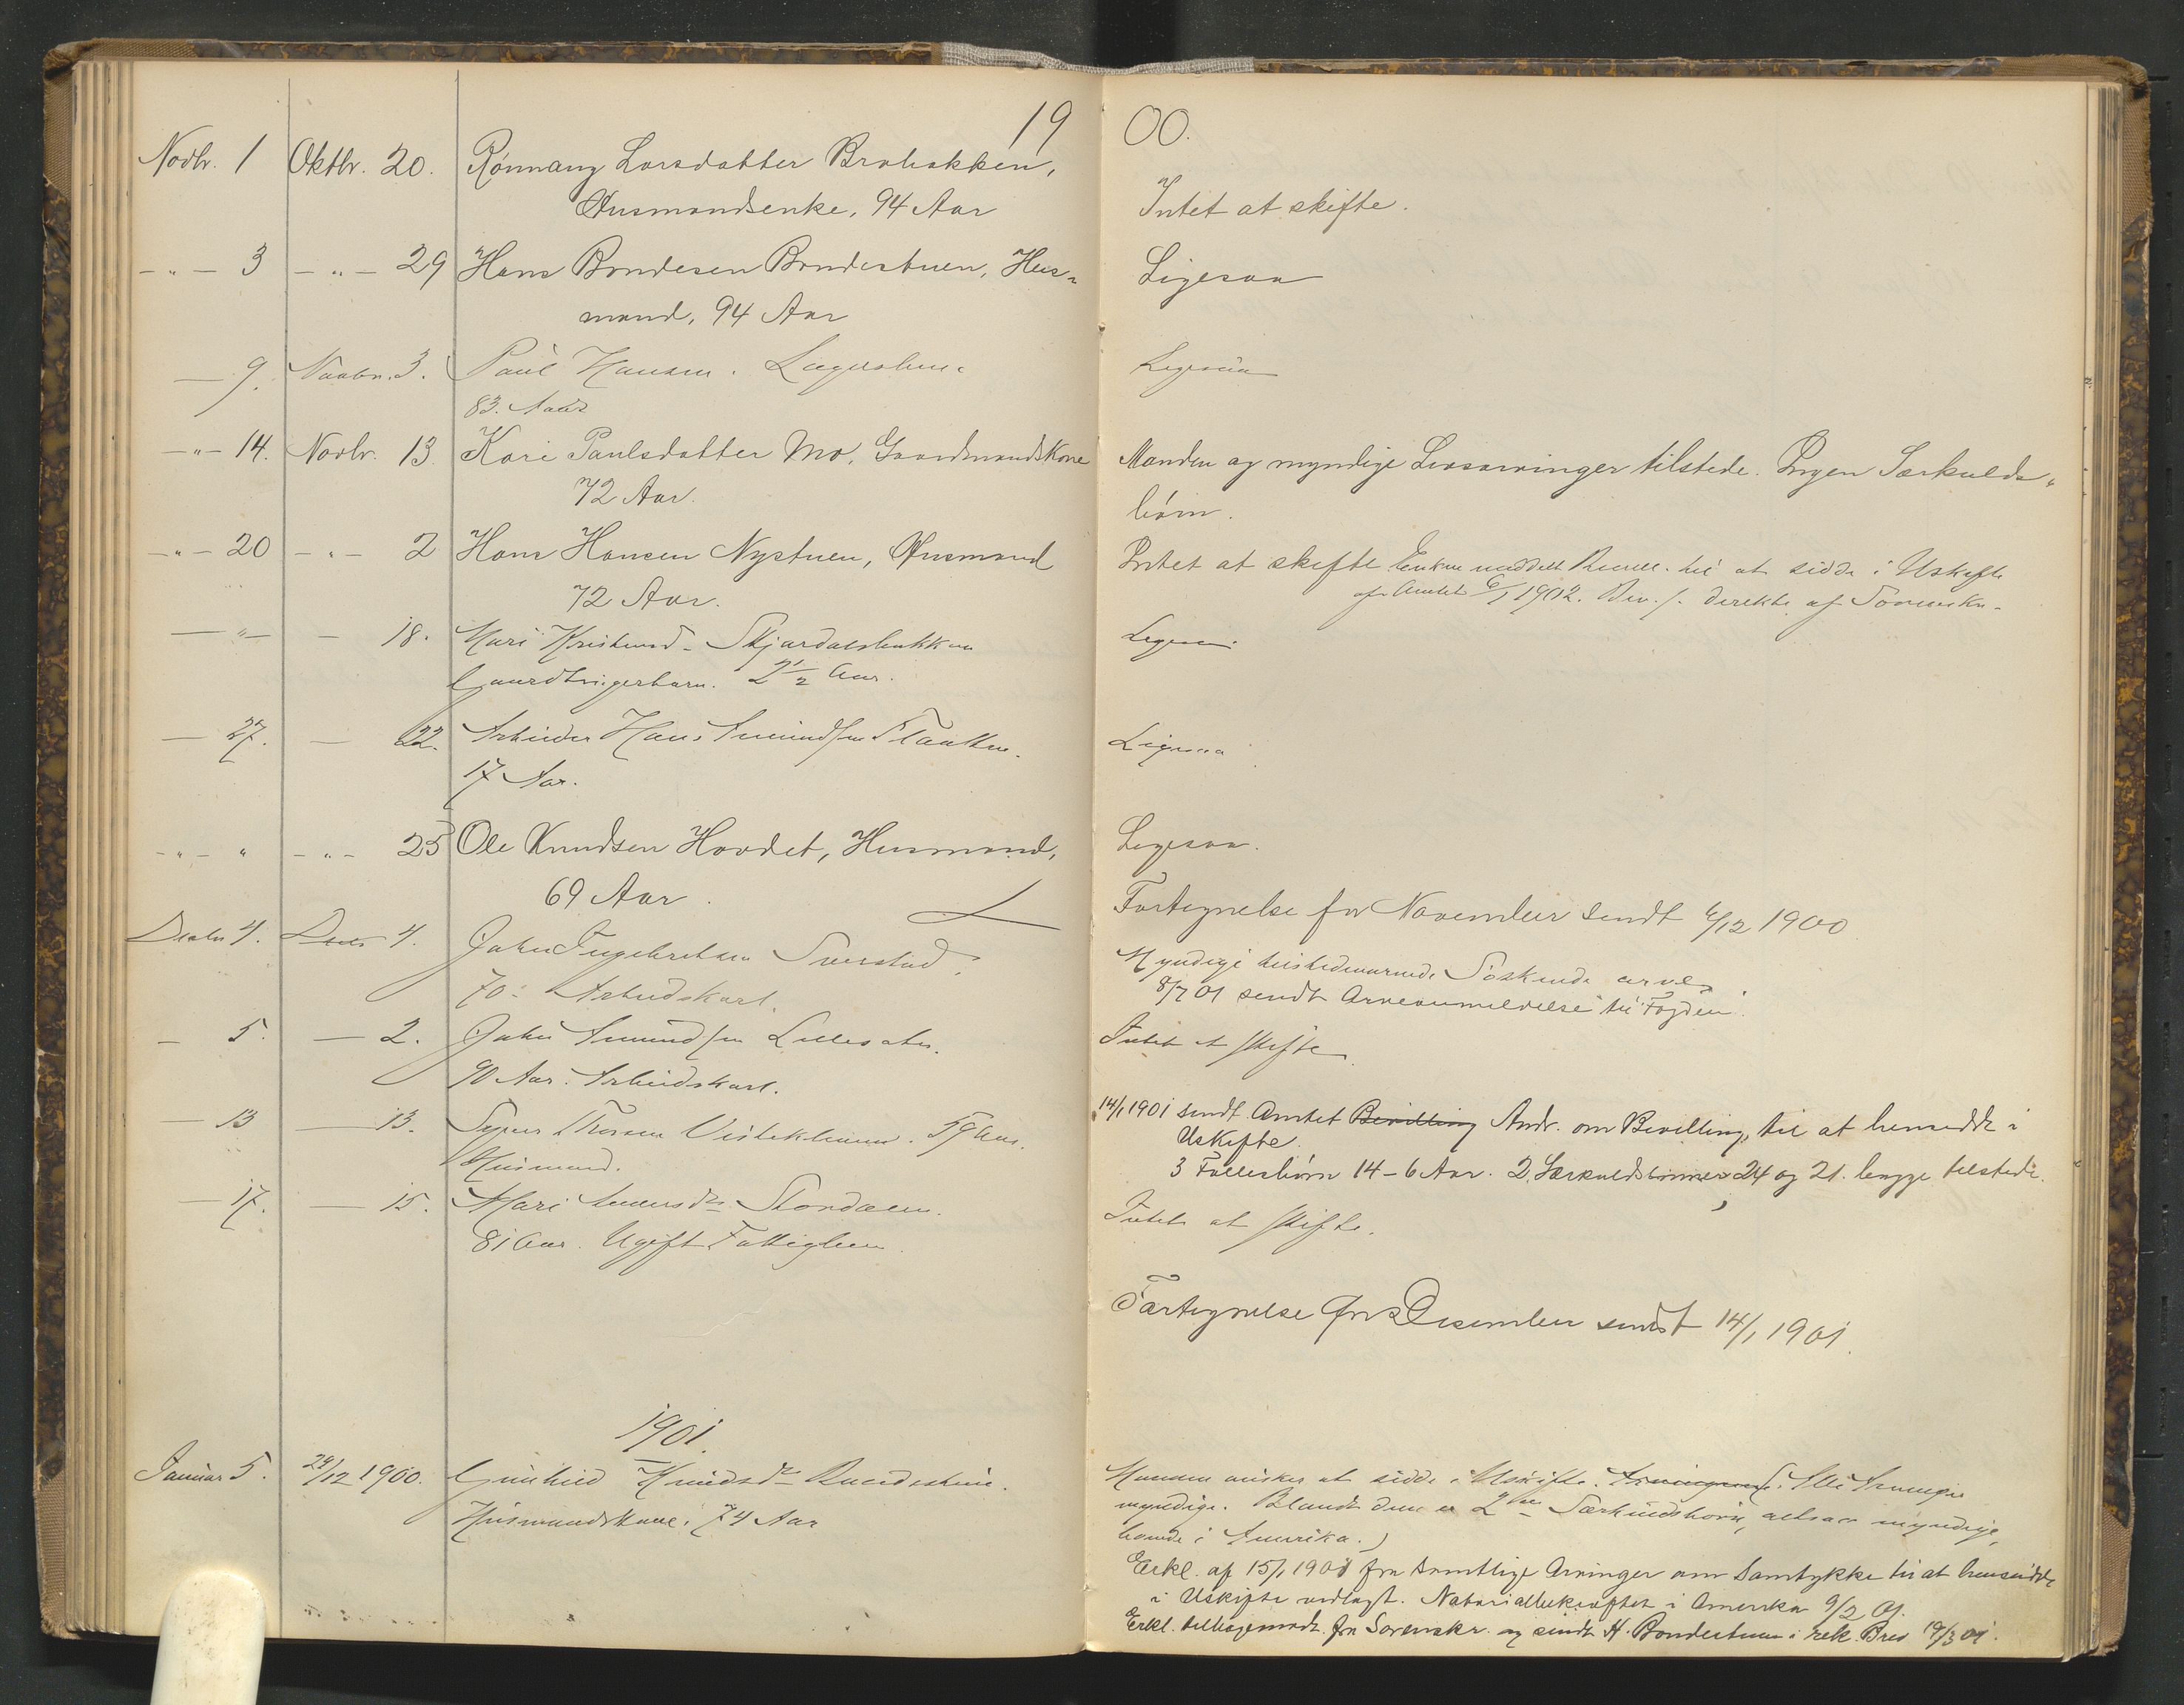 1900.
Novbr. 1 Oktbr. 20. Rønnaug Larsdatter Brobakken,
Husmandsenke, 94 Aar
Intet at skifte.
-"- 3 -"- 29 Hans Bondesen Bondestuen, Hus-
mand, 94 Aar
Ligesaa
— 9. Novbr. 3. Paul Hansen
83. Aar
Ligesaa
-"- 14. Novbr. 13 Kari Paulsdatter Mo, Gaardmandskone
72 Aar.
Manden og myndige Livsarvinger tilstede. Ingen Særkulds-
børn.
-"- 20 -"- 2 Hans Hansen Nystuen, Husmand
72 Aar.
Intet at skifte Enken meddelt Bevill. til at sidde i Uskifte
af Amtet 6/1 1902. Bev. f. direkte af Sorenskr.
—"— — 18. Mari Kristiansd.
Gaardbrugerbarn. 2 1/2 Aar.
Ligesaa
— 27. — 22. Arbeider Hans Amundsen
17 Aar.
Ligesaa
-"- " -"- 25 Ole Knudsen Hovdet, Husmand,
69 Aar.
Ligesaa.
Fortegnelse for November sendt 4/12 1900
Decbr 4. Decbr 4. John Ingebretsen
70. Arbeidskarl.
Myndige tilstedeværende Søskende arver
8/7 01 sendt Arveanmeldelse til Fogden.
— 5. — 2. John Amundsen
90 Aar. Arbeidskarl.
Intet at skifte
— 13 — 13. Thorsen 59 Aar.
Husmand.
14/1 1901 sendt Amtet Bevilling Andr. om Bevilling, til at hensidde i
Uskifte.
3 Fællesbørn 14-6 Aar. 2 Særkuldsbørn 24 og 21. begge tilstede.
— 17. — 15. Mari Andersdr
81 Aar. Ugift Fattiglem
Intet at skifte.
Fortegnelse for Desember sendt 14/1 1901.
1901.
Januar 5. 29/12 1900. Gunhild Knudsdr Bondestuen.
Husmandskone. 74 Aar
Manden ønsker at sidde i Uskifte. Alle Arvinger
myndige. Blandt dem er 2de Særkuldsbørn, altsaa myndige,
boende i Amerika.)
Erkl. af 15/1 1901 fra samtlige Arvinger om Samtykke til at hensidde
i Uskifte vedlagt. Notarialbekræftet i Amerika 9/2 01.
Erkl. tilbagesendt fra Sorenskr. og sendt H. Bondestuen i rek. Brev 19/3 01.